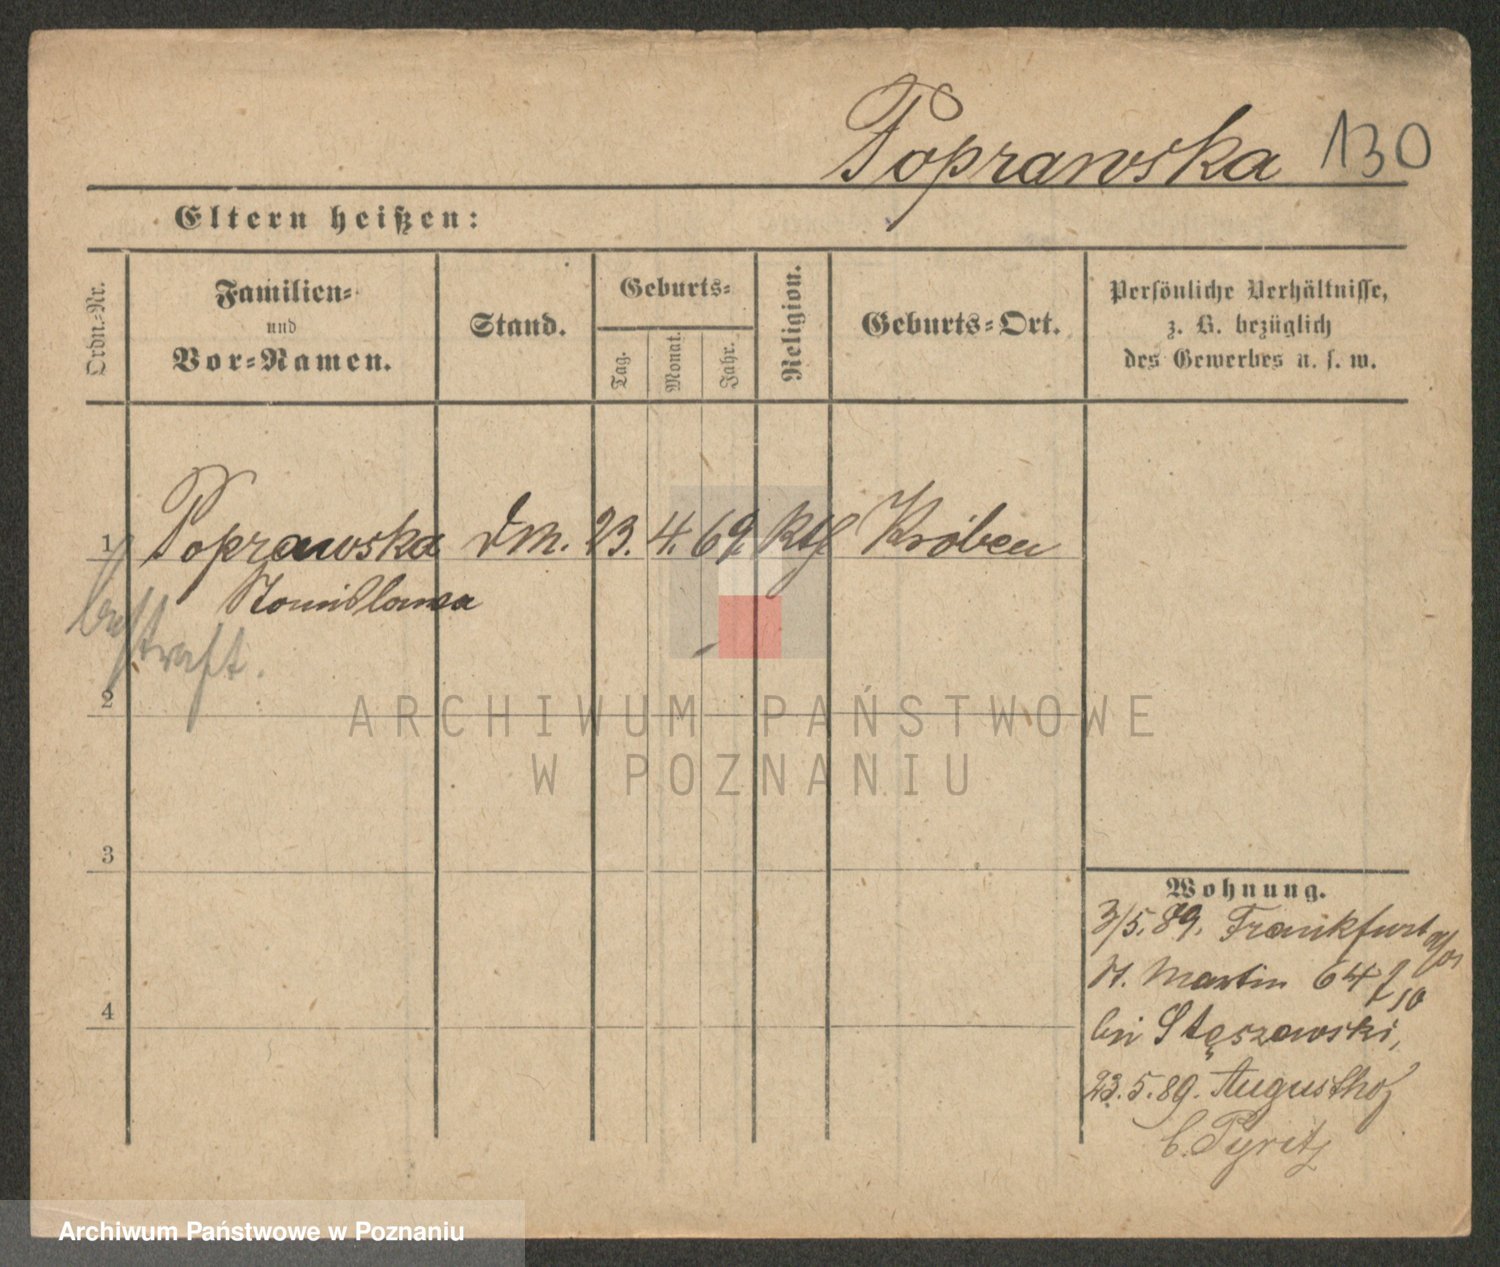 Poprawska 130
Eltern heißen:
Ordn.-Nr.
Familien-
und
Vor-Namen.
Stand.
Geburts-
Tag.
Monat.
Jahr.
Religion.
Geburts-Ort.
Persönliche Verhältnisse,
z. B. bezüglich
des Gewerbes u. s. w.
1 Poprawska 23. 4. 69 Kth Kröben
Stanislawa
bestraft.
2
3
4
Wohnung.
3/5. 89. Frankfurt
St. Martin 64
bei Stęszewski,
23. 5. 89. Augusthof
b. Pyritz
ARCHIWUM PAŃSTWOWE
W POZNANIU
Archiwum Państwowe w Poznaniu